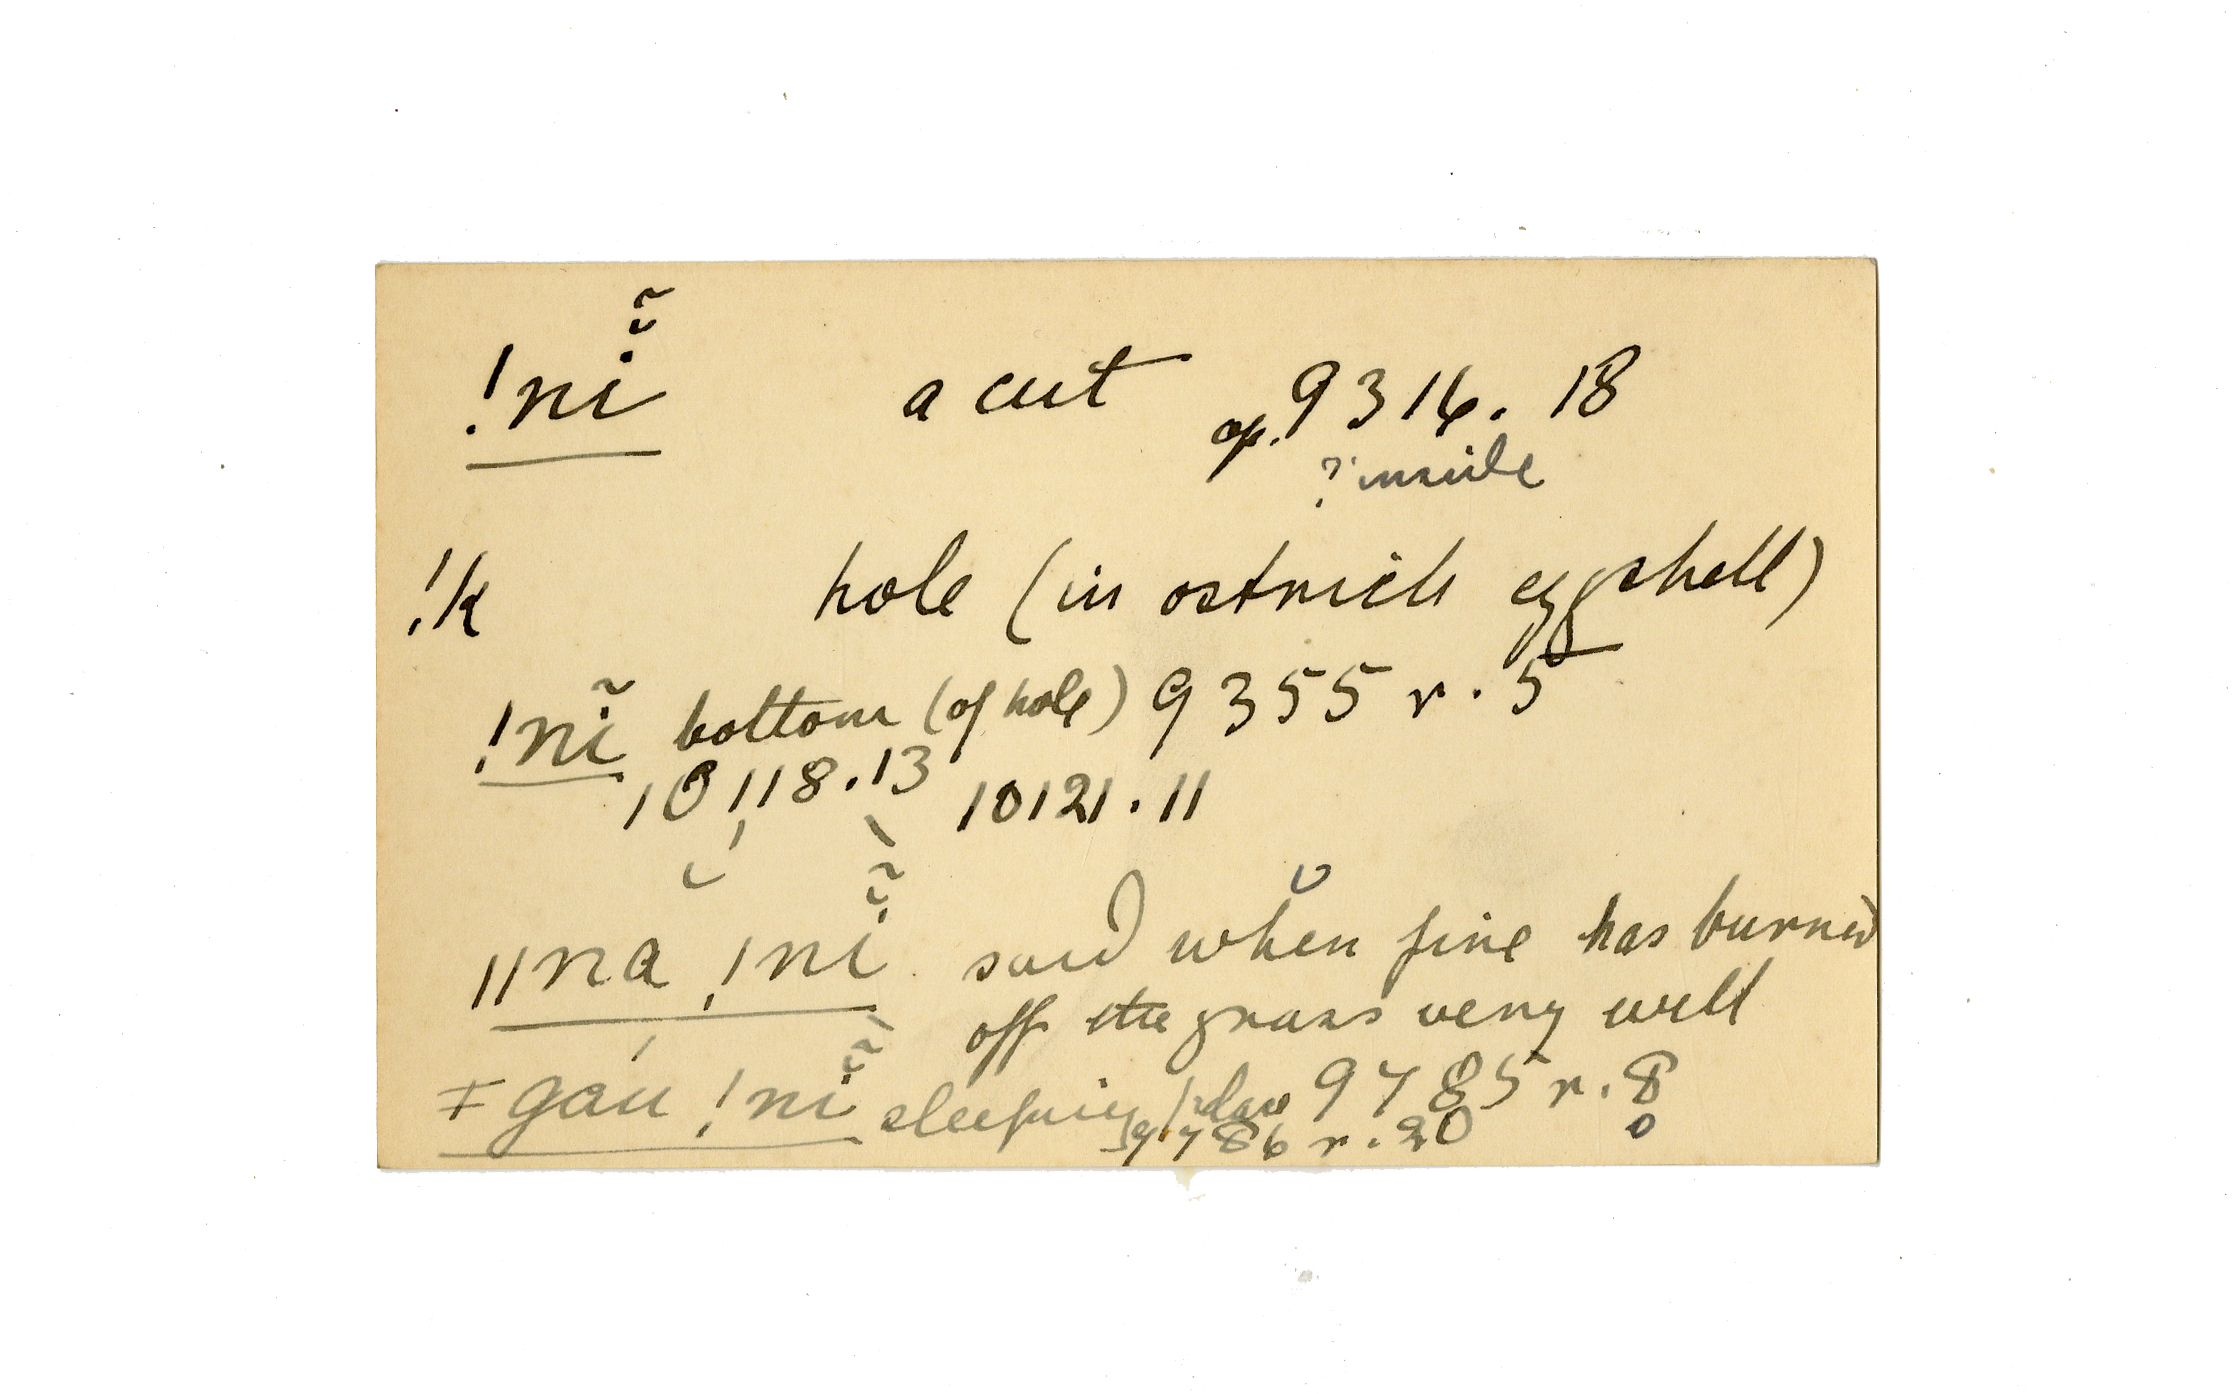 !nĭ̃ a cut op. 9316. 18
? inside
!k hole (in ostrich eggshell)
!nĩ bottom (of hole) 9355 r. 5
10118.13 10121.11
ǁna !nĭ̃̀ said when fire has burned
off the grass very well
ǂgáu !nĭ̃̀ sleeping place 9785 r. 8
9786 r. 20